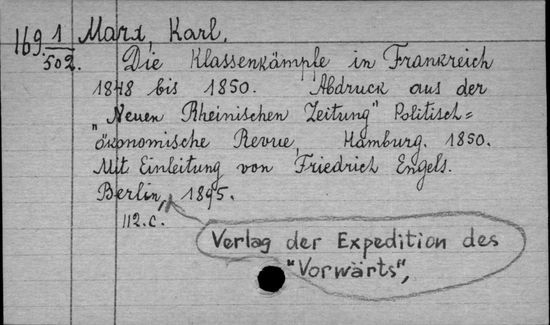 169. 1/502. Marx, Karl.
Die Klassenkämpfe in Frankreich
1848 bis 1850. Abdruck aus der
"Neuen Rheinischen Zeitung" Politisch=
ökonomische Revue, Hamburg. 1850.
Mit Einleitung von Friedrich Engels.
Berlin, 1895.
112.c.
Verlag der Expedition des
"Vorwärts",